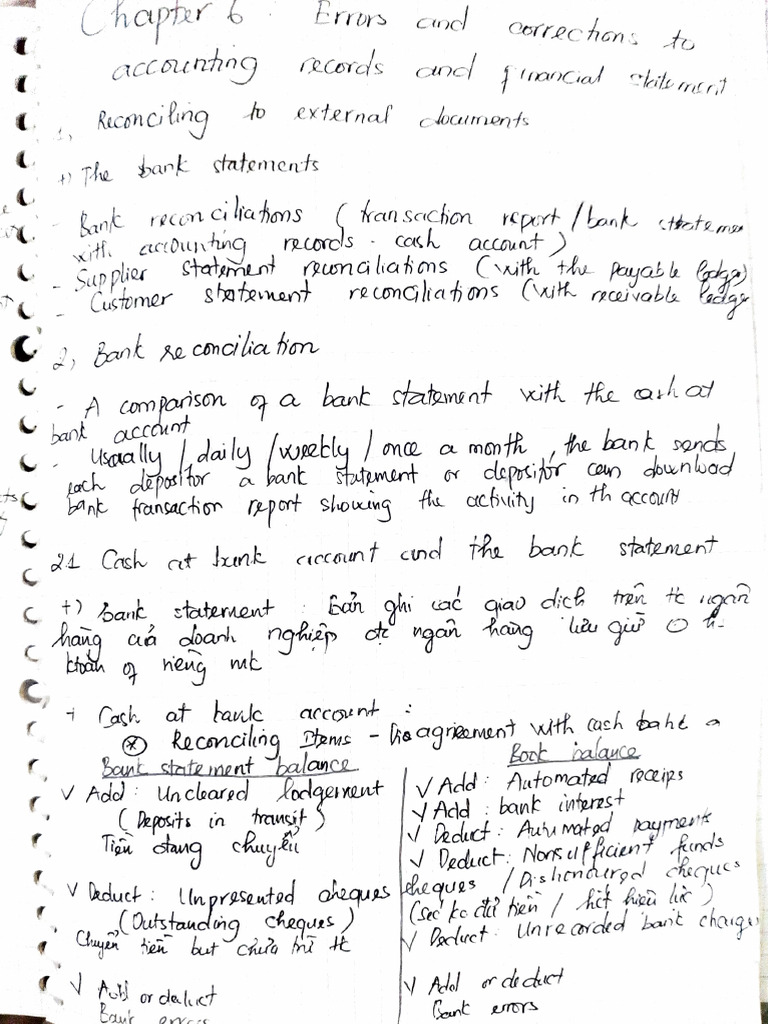 Chapter 6 : Errors and corrections to
accounting records and financial statement
1, Reconciling to external documents
+) The bank statements
- Bank reconciliations ( transaction report / bank stateme
with accounting records - cash account )
- Supplier statement reconciliations (with the payable ledge)
- Customer statement reconciliations (with receivable ledge
2, Bank reconciliation
- A comparison of a bank statement with the cash at
bank account
- Usually / daily / weekly / once a month , the bank sends
each depositor a bank statement or depositor can download
bank transaction report showing the activity in th account
2.1 Cash at bank account and the bank statement
+) Bank statement : Bản ghi các giao dịch trên tk ngân
hàng của doanh nghiệp đc ngân hàng lưu giữ
khoản riêng
+ Cash at bank account :
* Reconciling Items - Disagreement with cash
Bank statement balance
V Add : Uncleared lodgement
( Deposits in transit )
Tiền đang chuyển
V Deduct : Unpresented cheques
(Outstanding cheques)
Chuyển tiền but chưa trừ tk
V Add or deduct
Bank errors
Book balance
V Add : Automated receips
V Add : bank interest
V Deduct : Automated payments
V Deduct : Nonsufficient funds
cheques / Dishonoured cheques
(séc ko đủ tiền / hết hiệu lực )
V Deduct : Unrecorded bank charge
V Add or deduct
Bank errors